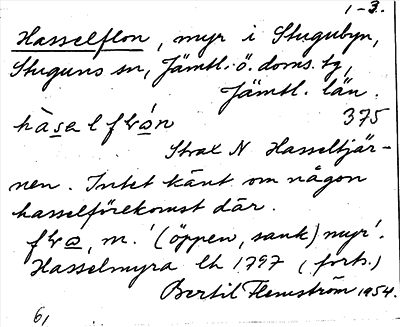 1-3.
Hasselflon, myr i Stugubyn,
Stuguns sn, Jämtl. ö. doms. tg,
Jämtl. län.
hàsalflo̱n 375
Strax N Hasseltjär-
nen. Intet känt om någon
hasselförekomst där.
m. '(öppen, sank) myr'.
Hasselmyra lh 1797 (fork.)
Bertil Flemström 1954.
61